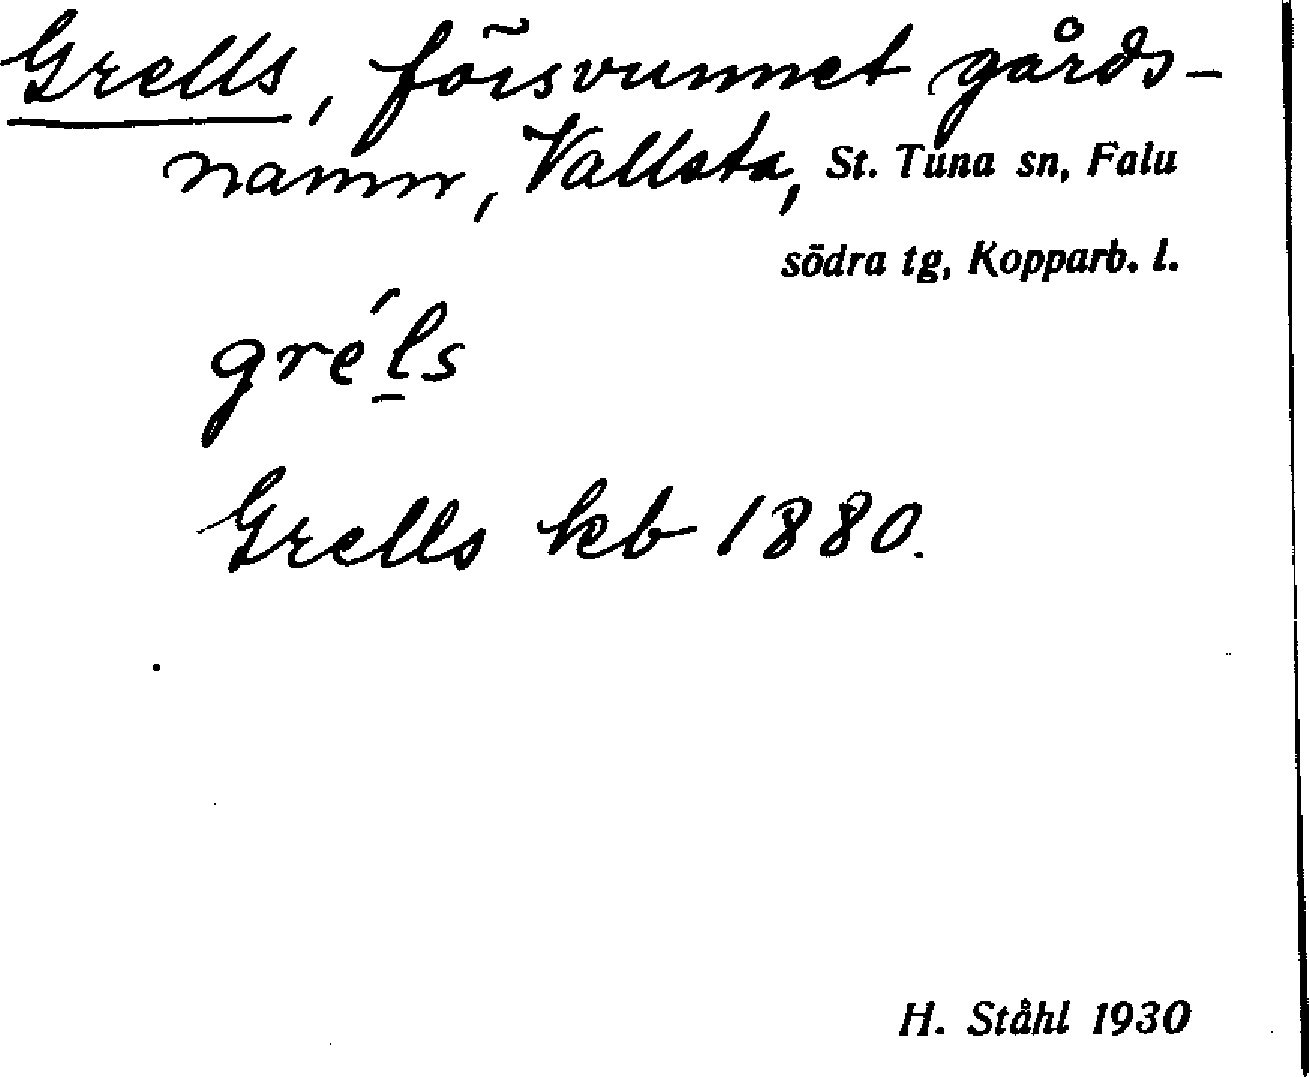 Grells, försvunnet gårds-
namn, Vallsta, St. Tuna sn, Falu
södra tg, Kopparb. l.
gre´l̠s
Grells kb 1880.
H. Ståhl 1930